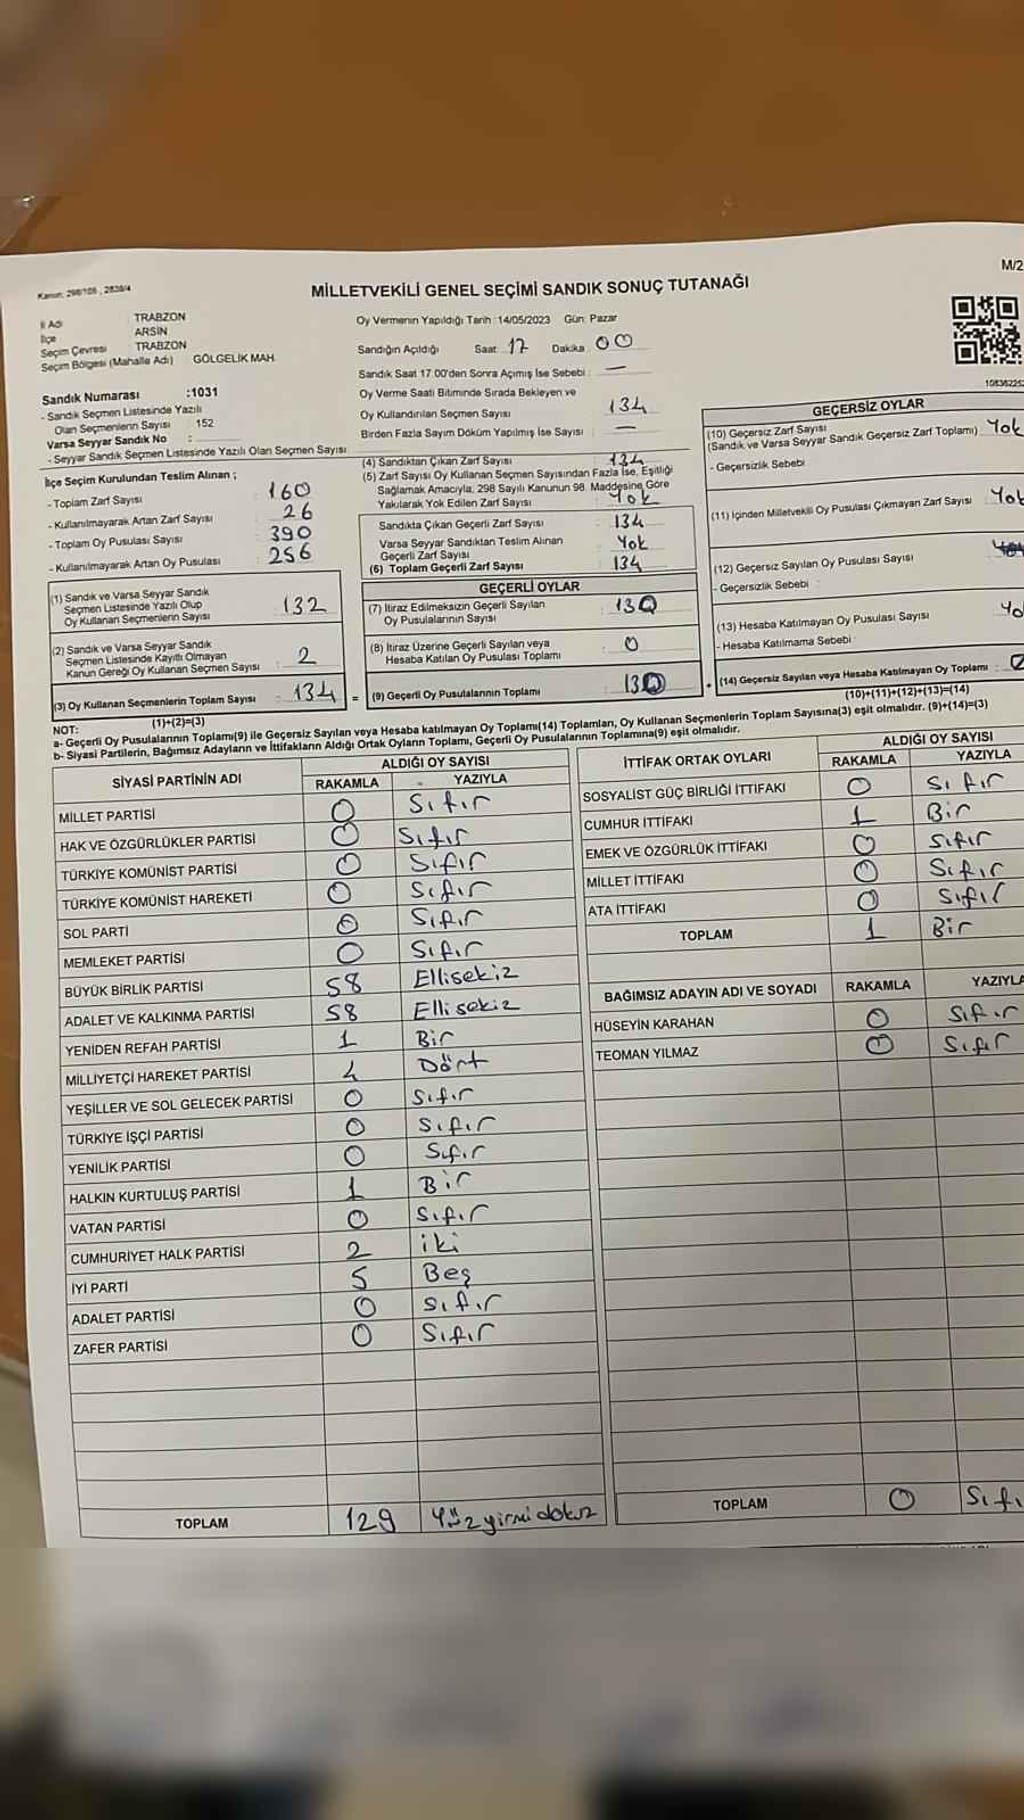 Kanun: 298/105 , 2839/4
M/2
MİLLETVEKİLİ GENEL SEÇİMİ SANDIK SONUÇ TUTANAĞI
İl Adı TRABZON
İlçe ARSİN
Seçim Çevresi TRABZON
Seçim Bölgesi (Mahalle Adı) GÖLGELİK MAH.
Sandık Numarası :1031
- Sandık Seçmen Listesinde Yazılı
Olan Seçmenlerin Sayısı 152
Varsa Seyyar Sandık No :
- Seyyar Sandık Seçmen Listesinde Yazılı Olan Seçmen Sayısı
İlçe Seçim Kurulundan Teslim Alınan ;
- Toplam Zarf Sayısı : 160
- Kullanılmayarak Artan Zarf Sayısı : 26
- Toplam Oy Pusulası Sayısı : 390
- Kullanılmayarak Artan Oy Pusulası : 256
(1) Sandık ve Varsa Seyyar Sandık
Seçmen Listesinde Yazılı Olup
Oy Kullanan Seçmenlerin Sayısı : 132
(2) Sandık ve Varsa Seyyar Sandık
Seçmen Listesinde Kayıtlı Olmayan
Kanun Gereği Oy Kullanan Seçmen Sayısı : 2
(3) Oy Kullanan Seçmenlerin Toplam Sayısı : 134 =
(1)+(2)=(3)
Oy Vermenin Yapıldığı Tarih :14/05/2023 Gün: Pazar
Sandığın Açıldığı Saat 17 Dakika 00
Sandık Saat 17.00'den Sonra Açımış İse Sebebi : —
Oy Verme Saati Bitiminde Sırada Bekleyen ve
Oy Kullandırılan Seçmen Sayısı 134
Birden Fazla Sayım Döküm Yapılmış İse Sayısı : —
(4) Sandıktan Çıkan Zarf Sayısı : 134
(5) Zarf Sayısı Oy Kullanan Seçmen Sayısından Fazla İse, Eşitliği
Sağlamak Amacıyla, 298 Sayılı Kanunun 98. Maddesine Göre
Yakılarak Yok Edilen Zarf Sayısı : Yok
Sandıkta Çıkan Geçerli Zarf Sayısı : 134
Varsa Seyyar Sandıktan Teslim Alınan
Geçerli Zarf Sayısı Yok
(6) Toplam Geçerli Zarf Sayısı : 134
GEÇERLİ OYLAR
(7) İtiraz Edilmeksizin Geçerli Sayılan
Oy Pusulalarının Sayısı : 130
(8) İtiraz Üzerine Geçerli Sayılan veya
Hesaba Katılan Oy Pusulası Toplamı : 0
(9) Geçerli Oy Pusulalarının Toplamı : 130 +
GEÇERSİZ OYLAR
(10) Geçersiz Zarf Sayısı
(Sandık ve Varsa Seyyar Sandık Geçersiz Zarf Toplamı) Yok
- Geçersizlik Sebebi
(11) İçinden Milletvekili Oy Pusulası Çıkmayan Zarf Sayısı : Yok
(12) Geçersiz Sayılan Oy Pusulası Sayısı
- Geçersizlik Sebebi :
(13) Hesaba Katılmayan Oy Pusulası Sayısı
- Hesaba Katılmama Sebebi :
(14) Geçersiz Sayılan veya Hesaba Katılmayan Oy Toplamı :
(10)+(11)+(12)+(13)=(14)
NOT:
a- Geçerli Oy Pusulalarının Toplamı(9) ile Geçersiz Sayılan veya Hesaba katılmayan Oy Toplamı(14) Toplamları, Oy Kullanan Seçmenlerin Toplam Sayısına(3) eşit olmalıdır. (9)+(14)=(3)
b- Siyasi Partilerin, Bağımsız Adayların ve İttifakların Aldığı Ortak Oyların Toplamı, Geçerli Oy Pusulalarının Toplamına(9) eşit olmalıdır.
SİYASİ PARTİNİN ADI ALDIĞI OY SAYISI
RAKAMLA YAZIYLA
MİLLET PARTİSİ 0 Sıfır
HAK VE ÖZGÜRLÜKLER PARTİSİ 0 Sıfır
TÜRKİYE KOMÜNİST PARTİSİ 0 Sıfır
TÜRKİYE KOMÜNİST HAREKETİ 0 Sıfır
SOL PARTİ 0 Sıfır
MEMLEKET PARTİSİ 0 Sıfır
BÜYÜK BİRLİK PARTİSİ 58 Ellisekiz
ADALET VE KALKINMA PARTİSİ 58 Ellisekiz
YENİDEN REFAH PARTİSİ 1 Bir
MİLLİYETÇİ HAREKET PARTİSİ 4 Dört
YEŞİLLER VE SOL GELECEK PARTİSİ 0 Sıfır
TÜRKİYE İŞÇİ PARTİSİ 0 Sıfır
YENİLİK PARTİSİ 0 Sıfır
HALKIN KURTULUŞ PARTİSİ 1 Bir
VATAN PARTİSİ 0 Sıfır
CUMHURİYET HALK PARTİSİ 2 iki
İYİ PARTİ 5 Beş
ADALET PARTİSİ 0 Sıfır
ZAFER PARTİSİ 0 Sıfır
TOPLAM 129 Yüzyirmidokuz
İTTİFAK ORTAK OYLARI ALDIĞI OY SAYISI
RAKAMLA YAZIYLA
SOSYALİST GÜÇ BİRLİĞİ İTTİFAKI 0 Sıfır
CUMHUR İTTİFAKI 1 Bir
EMEK VE ÖZGÜRLÜK İTTİFAKI 0 Sıfır
MİLLET İTTİFAKI 0 Sıfır
ATA İTTİFAKI 0 Sıfır
TOPLAM 1 Bir
BAĞIMSIZ ADAYIN ADI VE SOYADI RAKAMLA YAZIYLA
HÜSEYİN KARAHAN 0 Sıfır
TEOMAN YILMAZ 0 Sıfır
TOPLAM 0 Sıfı